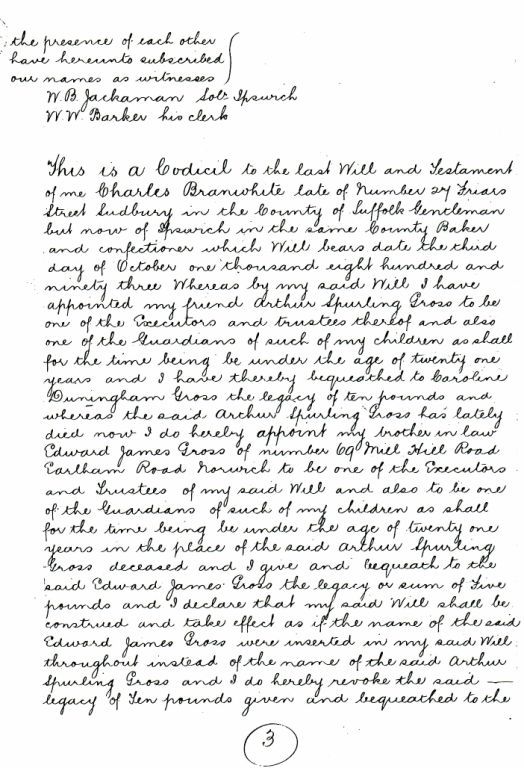 the presence of each other
have hereunto subscribed
our names as witnesses
W. B. Jackaman Solr Ipswich
W. W. Barker his clerk
This is a Codicil to the last Will and Testament
of me Charles Branwhite late of Number 27 Friars
Street Sudbury in the County of Suffolk Gentleman
but now of Ipswich in the same County Baker
and confectioner which Will bears date the third
day of October one thousand eight hundred and
ninety three Whereas by my said Will I have
appointed my friend Arthur Spurling Gross to be
one of the Executors and trustees thereof and also
one of the Guardians of such of my children as shall
for the time being be under the age of twenty one
years and I have thereby bequeathed to Caroline
Duningham Gross the legacy of ten pounds and
whereas the said Arthur Spurling Gross has lately
died now I do hereby appoint my brother in law
Edward James Gross of number 69 Mill Hill Road
Earlham Road Norwich to be one of the Executors
and Trustees of my said Will and also to be one
of the Guardians of such of my children as shall
for the time being be under the age of twenty one
years in the place of the said Arthur Spurling
Gross deceased and I give and bequeath to the
said Edward James Gross the legacy or sum of Five
pounds and I declare that my said Will shall be
construed and take effect as if the name of the said
Edward James Gross were inserted in my said Will
throughout instead of the name of the said Arthur
Spurling Gross and I do hereby revoke the said —
legacy of Ten pounds given and bequeathed to the
3